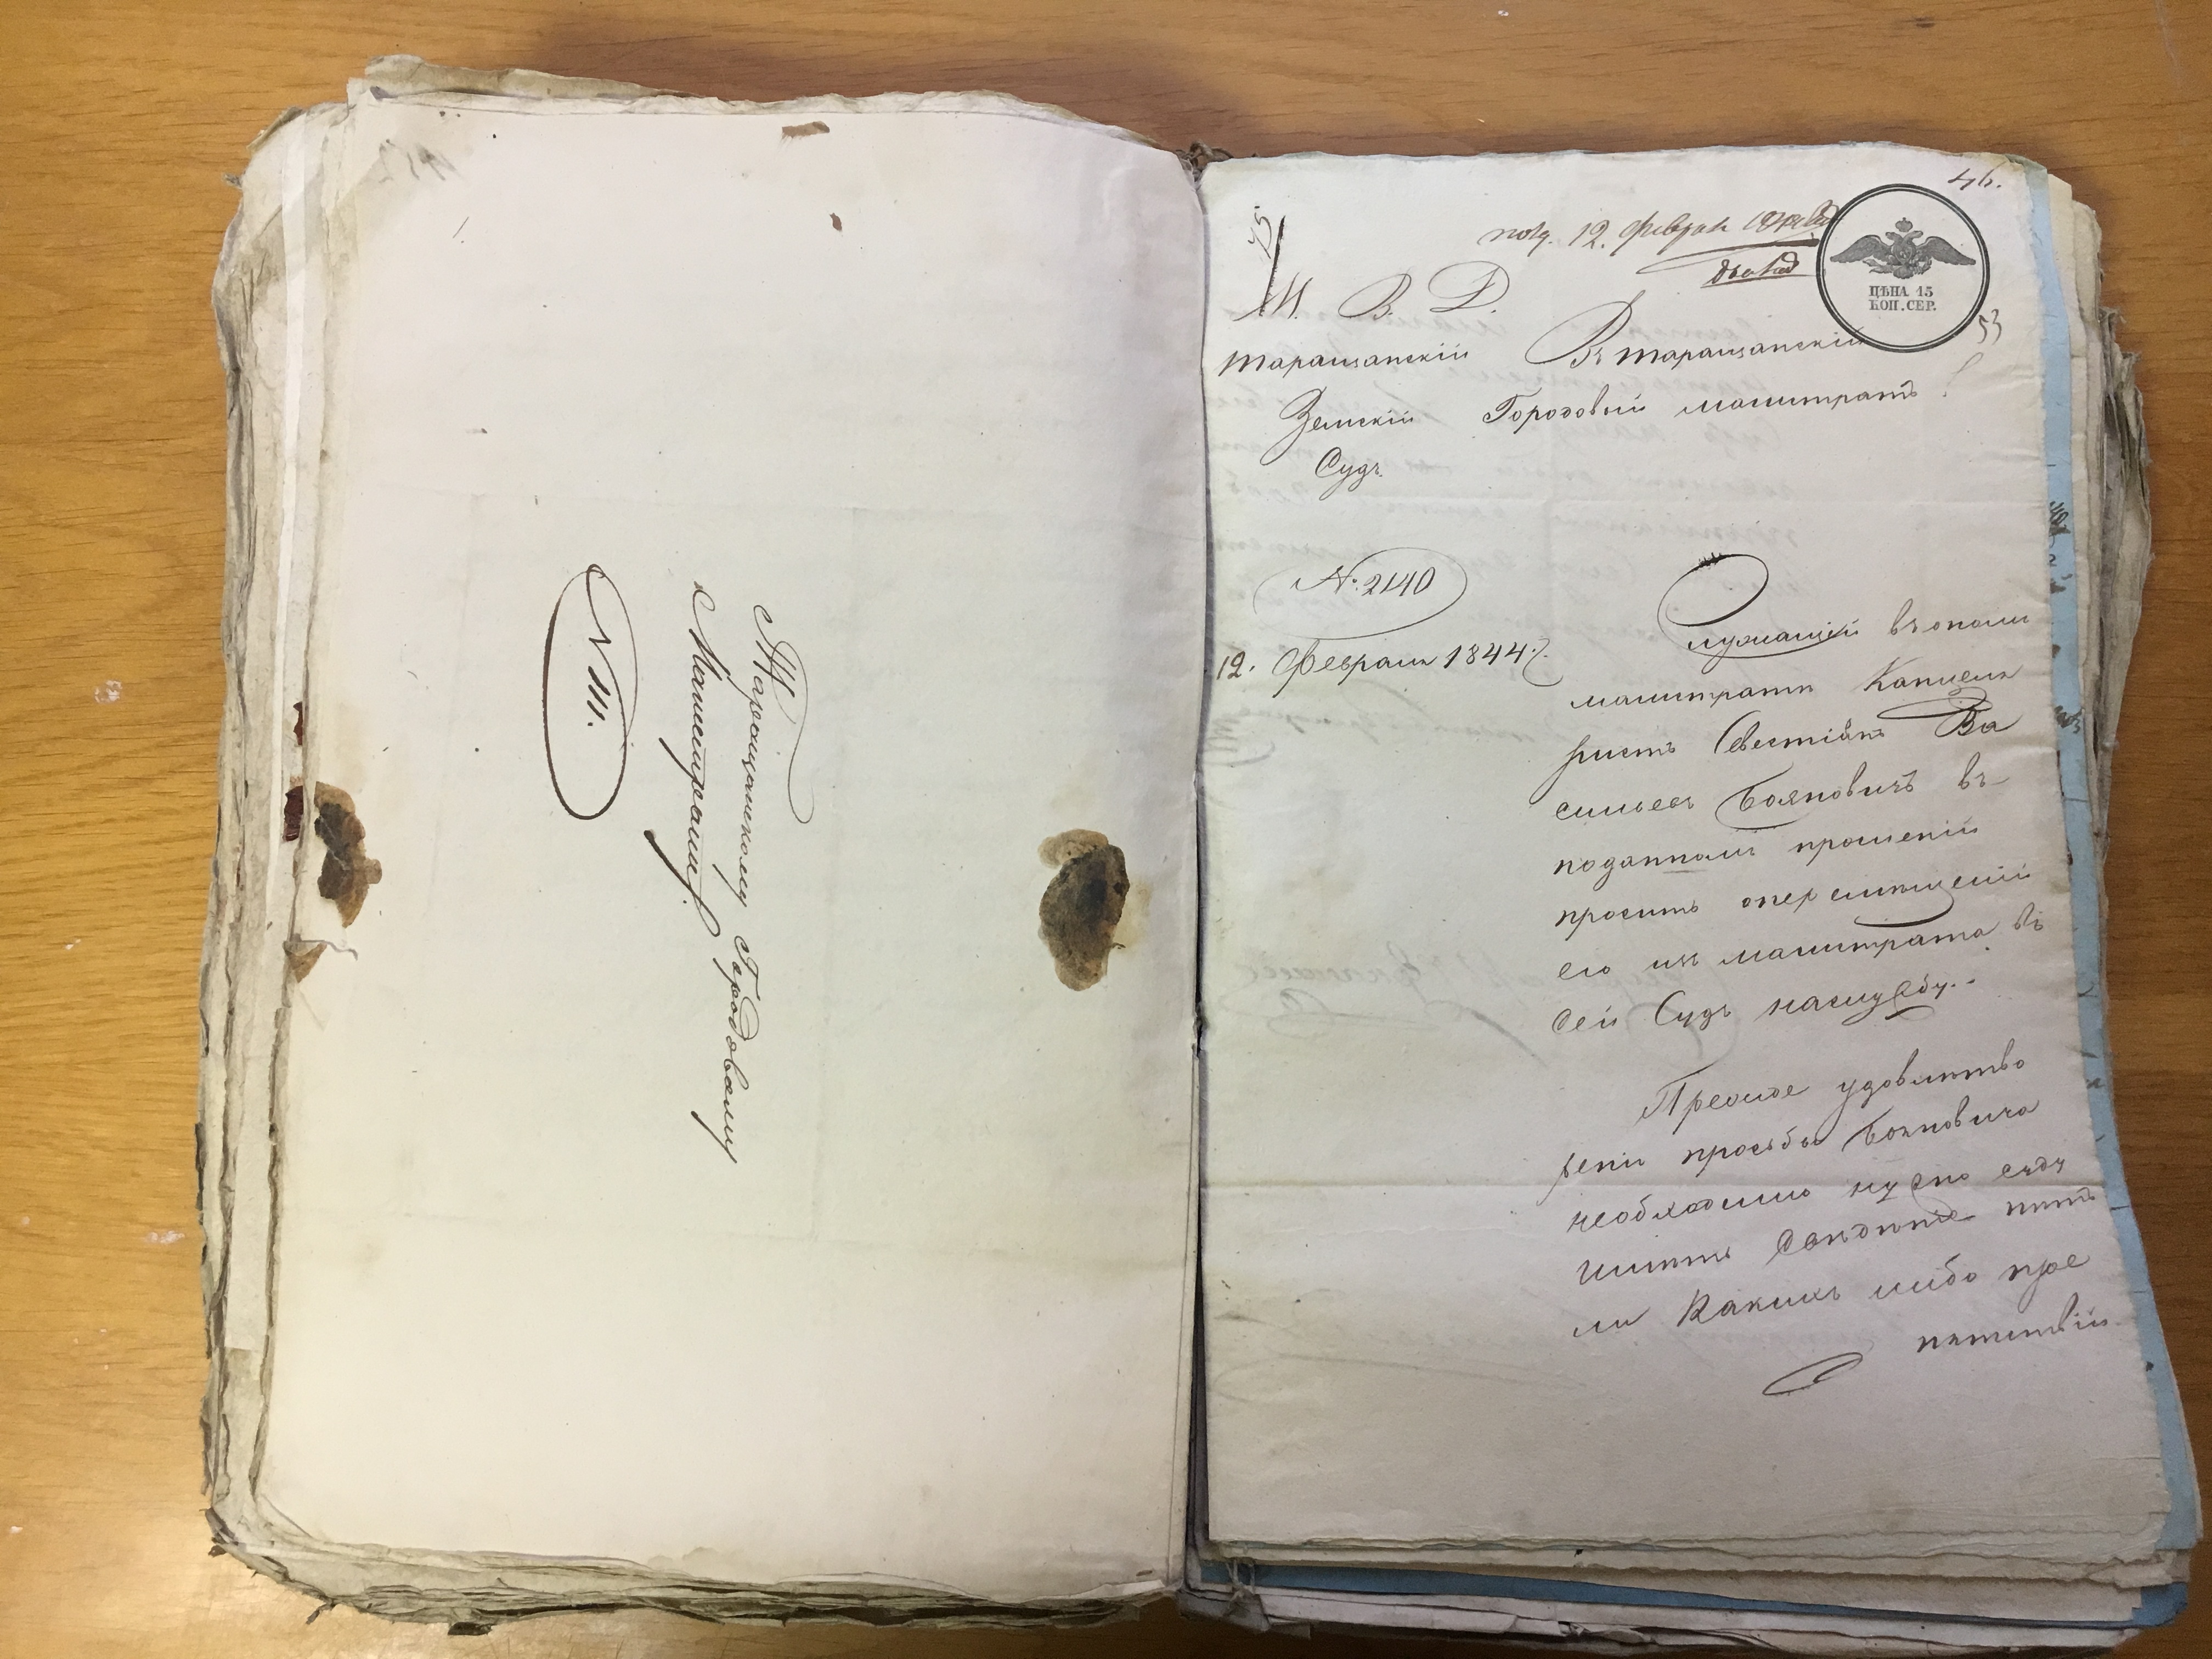 Таращанскому Городовому
Магистрату
№ 111.
46.
75
пол. 12. февраля
доклад
ЦѢНА 15
КОП. СЕР.
53
М. В. Д.
Таращанскій
Земскій
Судъ.
Въ Таращанскій
Городовый магистратъ
№ 2140
12. Февраля 1844 г.
Служащій въ ономъ
магистратѣ Канцеля
ристъ Севестіянъ Ва
сильевъ Бояновичъ въ
поданномъ прошеніи
проситъ о перемѣщеніи
его изъ магистрата въ
сей Судъ на службу.
Прежде удовлетво
ренія просьбы Бояновича
необходимо нужно суду
имѣть свѣдѣніе нѣтъ
ли какихъ либо пре
пятствій